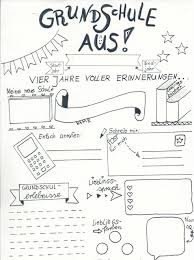 GRUNDSCHULE
AUS!
VIER JAHRE VOLLER ERINNERUNGEN...
Meine neue Schule
Einfach anrufen:
Schreib mir:
GRUNDSCHUL-
erlebnisse
Lieblings-
spruch
Lieblings-
farben